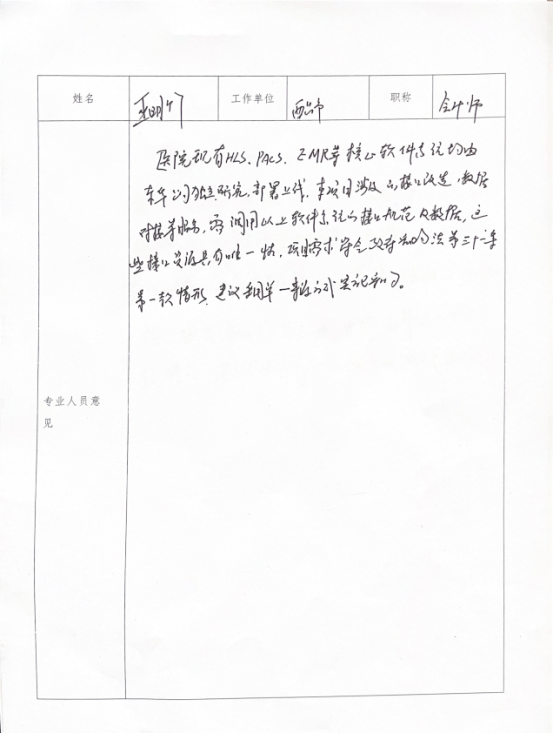 姓名 工作单位 职称 会计师
医院现有HLS、PACS、EMR等核心软件系统均由
东华公司独立研究、部署上线,本项目涉及的接口改造、数据
对接等服务,需调用以上软件系统的接口规范及数据,这
些接口资源具有唯一性,项目需求符合政府采购法第三十一条
第一款情形,建议采用单一来源方式
专业人员意
见